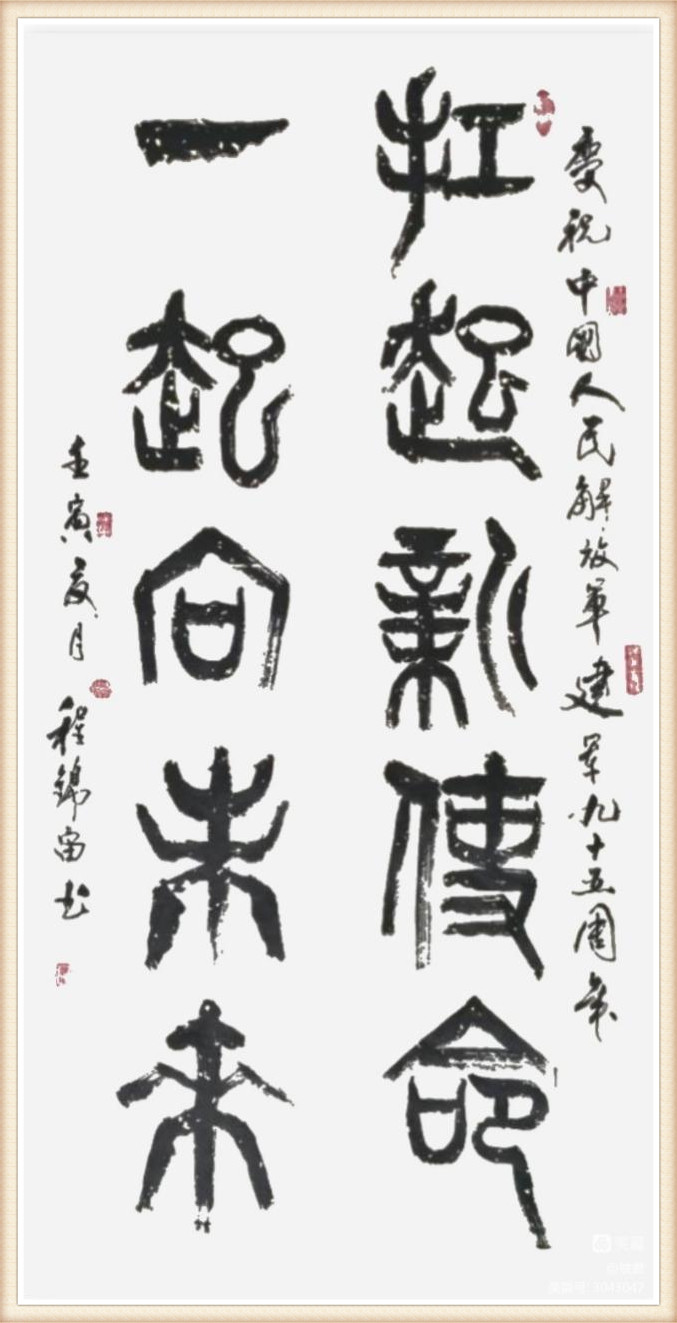 慶祝中國人民解放軍建軍九十五周年
扛起新使命
一起向未来
壬寅夏月 程錦富书